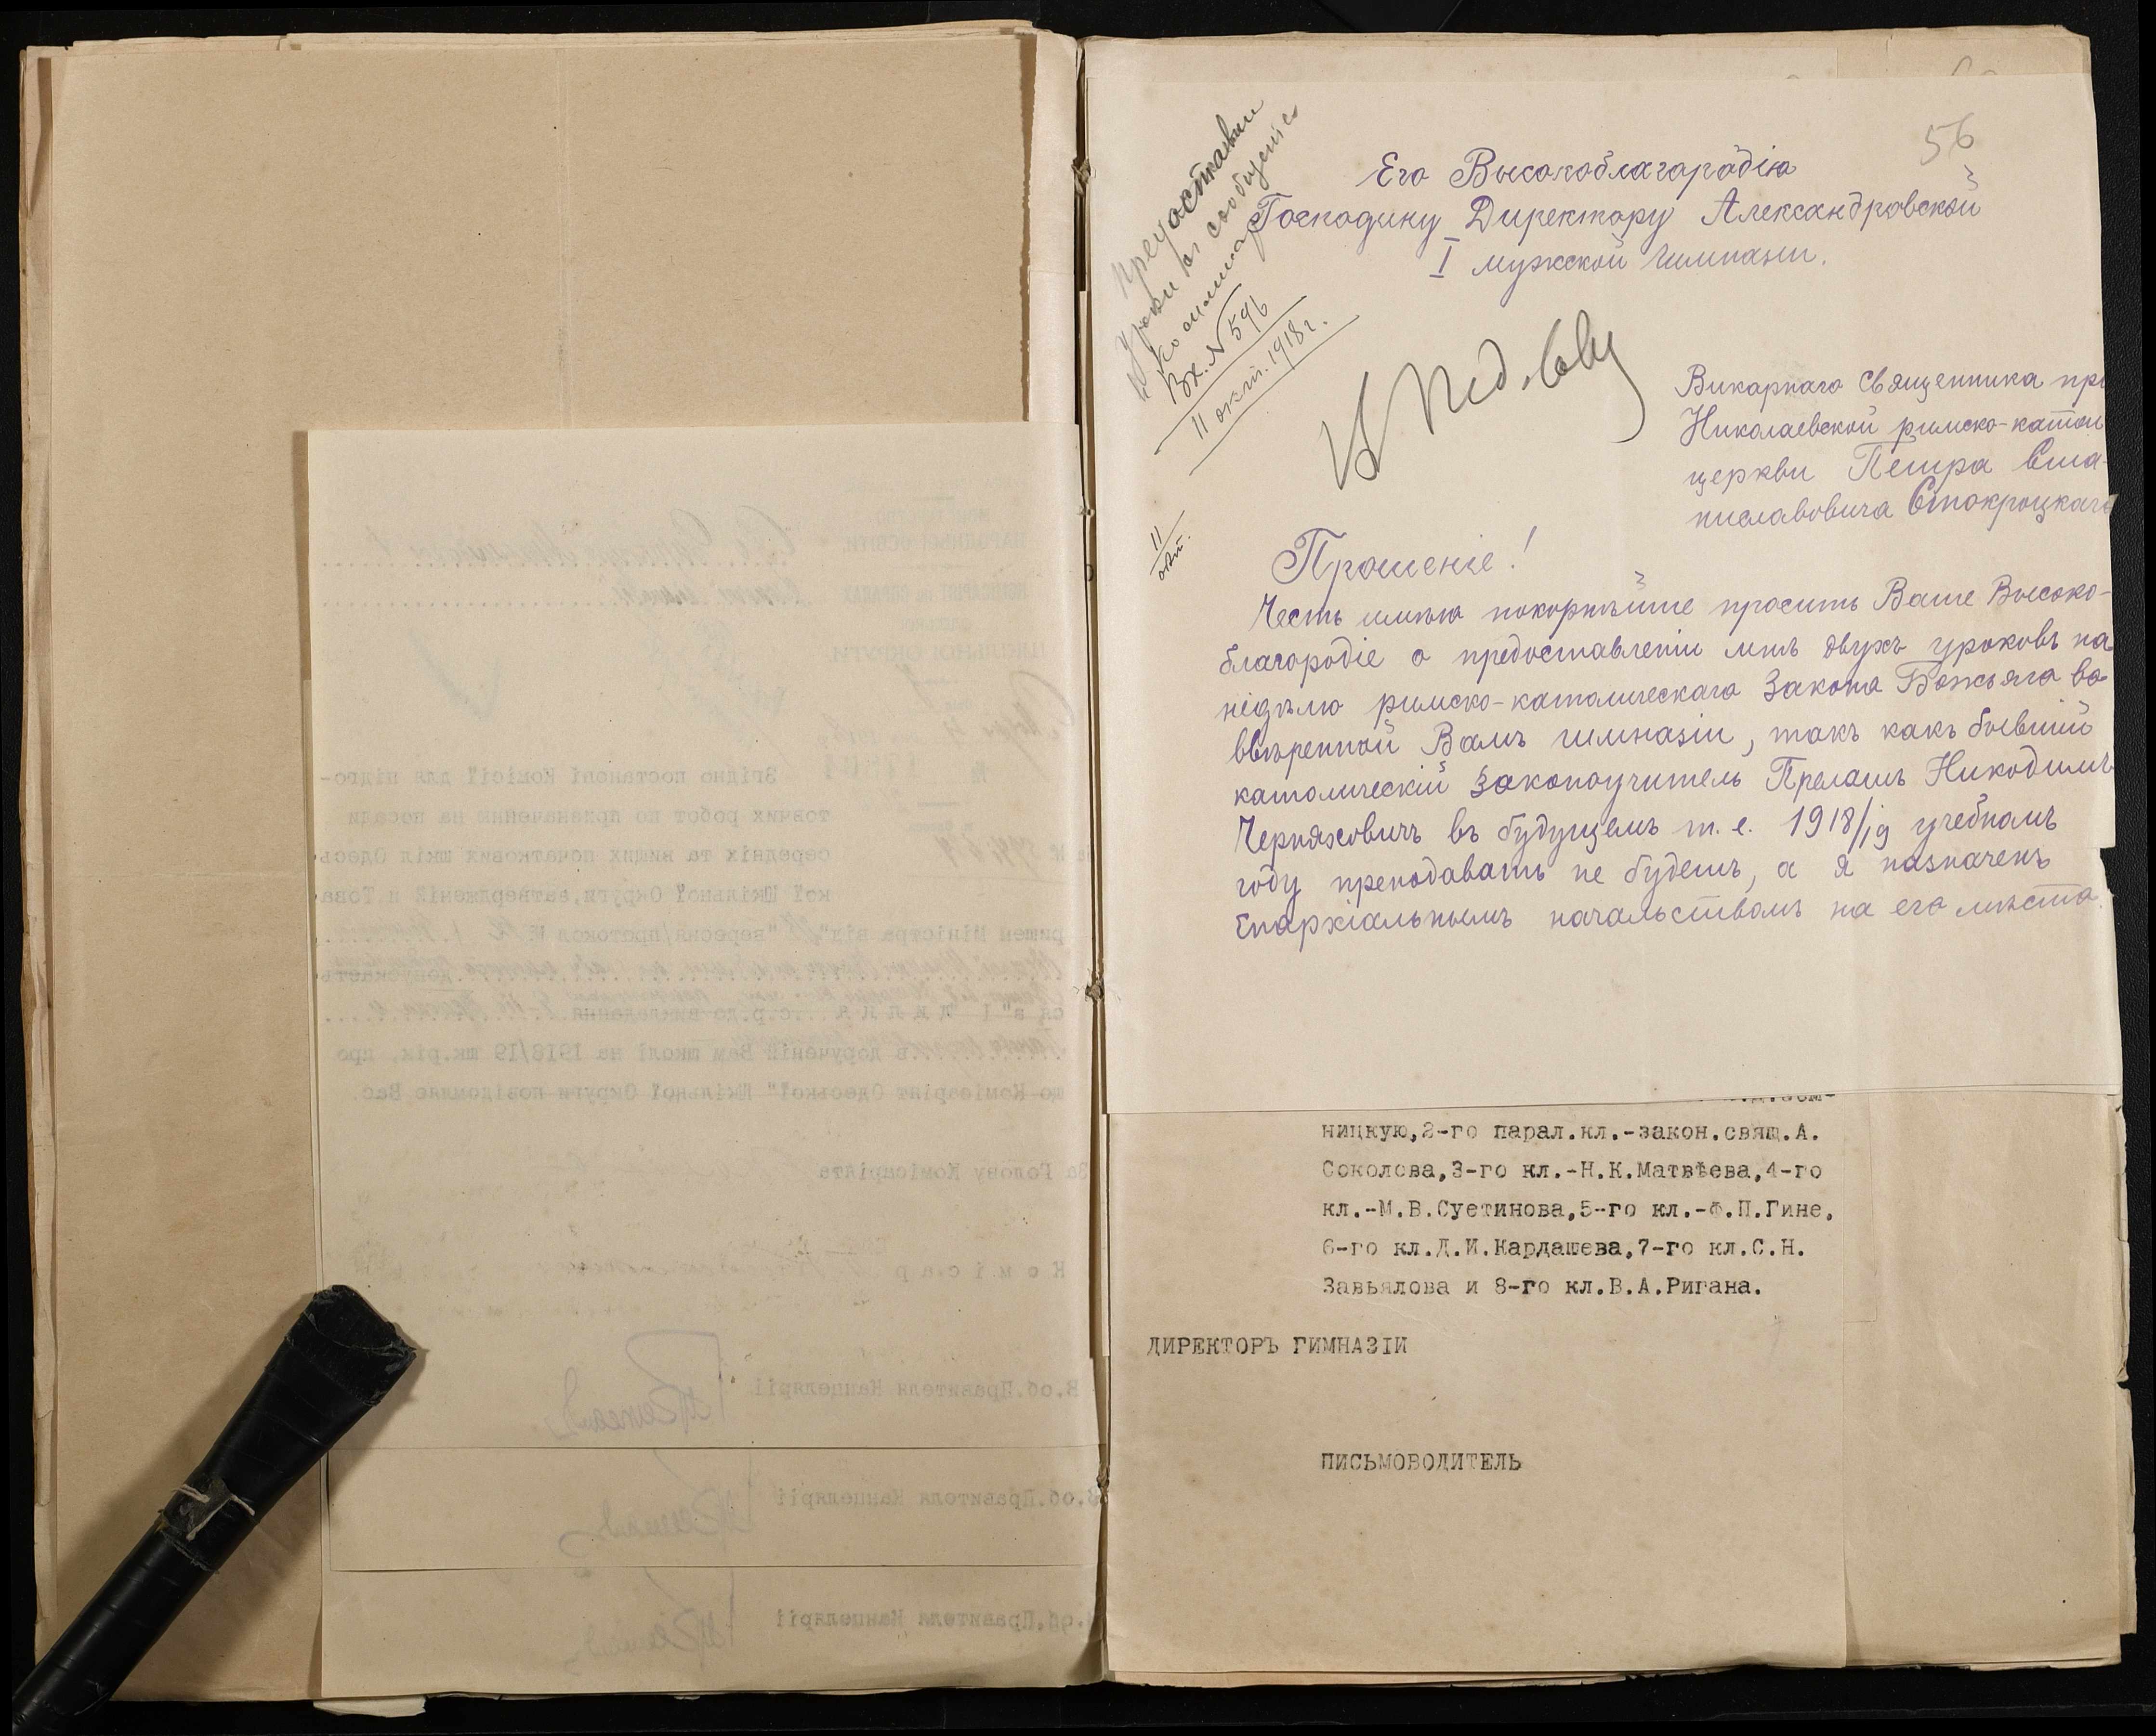 56
Предоставить
уроки и сообщить
Вх. N 596
11 окт. 1918 г.
11
окт.
Его Высокоблагородію
Господину Директору Александровской
I мужской гимназіи.
В Пед. Сов
Викарнаго священника при
Николаевской римско-катол
церкви Петра Ста-
ниславовича Стокроцкаго
Прошеніе!
Честь имѣю покорнѣйше просить Ваше Высоко-
благородіе о предоставленіи мнѣ двухъ уроковъ на
недѣлю римско-католическаго Закона Божьяго во
ввѣренной Вамъ гимназіи, такъ какъ бывшій
католическій Законоучитель Прелатъ Никодимъ
Черняховичъ въ будущемъ т. е. 1918/19 учебномъ
году преподавать не будетъ, а я назначенъ
Епархіальнымъ начальствомъ на его мѣсто.
ницкую,2-го парал.кл.-закон.свящ.А.
Соколова,3-го кл.-Н.К.Матвѣева,4-го
кл.-М.В.Суетинова,5-го кл.-Ф.П.Гине,
6-го кл.Д.И.Кардашева,7-го кл.С.Н.
Завьялова и 8-го кл.В.А.Ригана.
ДИРЕКТОРЪ ГИМНАЗІИ
ПИСЬМОВОДИТЕЛЬ
Згідно постанові Комісії для підго-
товчих робот по призначенню на посади
середніх та вищих початкових шкіл Одесь-
кої Шкільної Округи,затвердженій п.Това-
ришем Міністра від "вересня/протокол №
допускаеть
ся з"1 липня с.р.до викладання
в дорученій Вам школі на 1918/19 шк.рік, про
що Комісаріят Одеської" Шкільної Округи повідомляє Вас.
За Голову Комісаріята
Комісар
В.об.Правителя Канцелярії
В.об.Правителя Канцелярії
В.об.Правителя Канцелярії